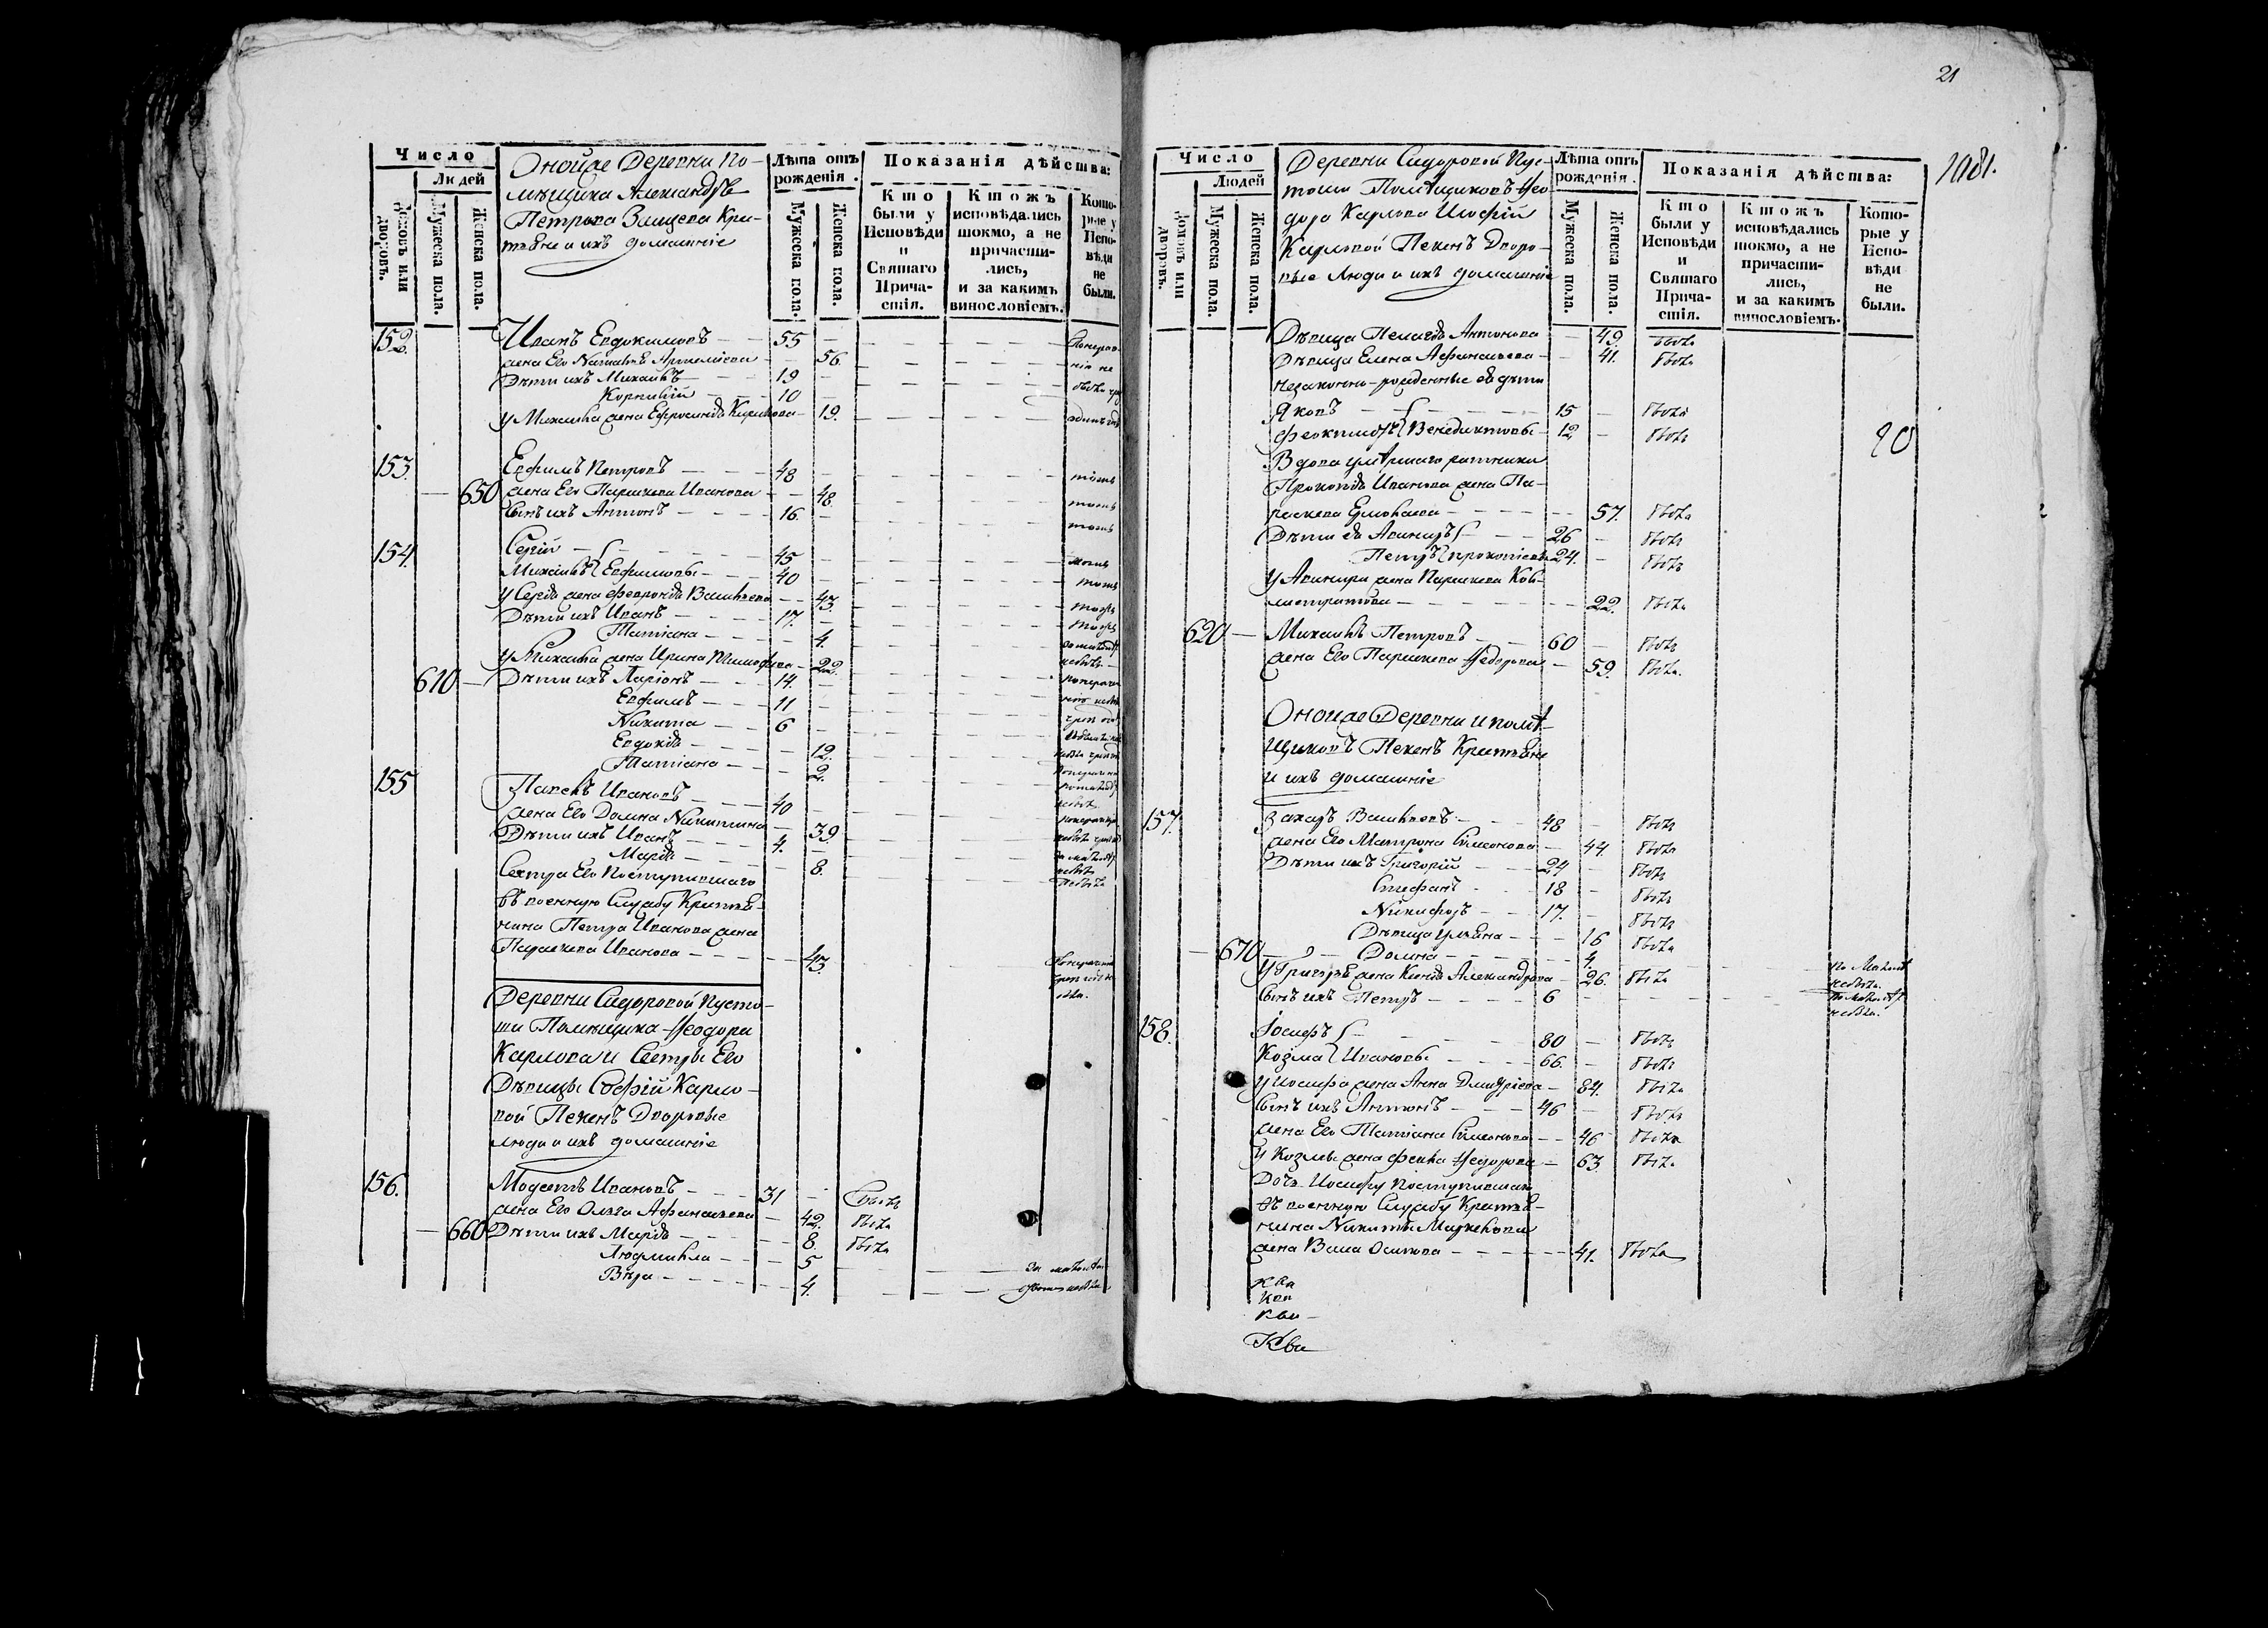 Число
Людей
Домовъ или дворовъ.
Мужеска пола.
Женска пола.
Оной же Деревни По-
мѣщика Александра
Петрова Зыщева Кре-
стьяне и ихъ домашніе
Лѣта отъ рожденія.
Мужеска пола.
Женска пола.
Показанія дѣйства:
Кто были у Исповѣди и Святаго Прича-стія.
Ктожъ исповѣдались токмо, а не причасти-лись, и за какимъ винословіемъ.
Кото-рые у Испо-вѣди не были.
152. Иванъ Евдокимовъ 55
жена Его Наталья 56.
Дѣти ихъ Михаилъ 19
Корнилій 10
у Михаила жена Ефросинія 19.
153. Ефимъ Петровъ 48
650 жена Его Параскева Иванова 48.
Сынъ ихъ Антонъ 16.
154. Сергій 45
Михаилъ Ефимовы 40
у Сергія жена Февронія Васильева 43.
Дѣти ихъ Иванъ 17.
Татіана 4.
у Михаила жена Ирина Тимофеева 22.
610 Дѣти ихъ Ларіонъ 14.
Ефимъ 11
Никита 6
Евдокія 12.
Татіана 2.
155 Павелъ Ивановъ 40
жена Его Домна Никитина 39.
Дѣти ихъ Иванъ 4.
Марія 8.
Сестра Его Поступившаго
въ военную Службу Крестья-
нина Петра Иванова жена
Параскева Иванова 43.
Деревни Сидоровой Пусто-
ши Помѣщика Ѳеодора
Карлова и Сестры Его
Дѣвицы Софіи Карло-
вой Пекенъ Дворовые
люди и ихъ домашніе
156. Модестъ Ивановъ 31
жена Его Ольга Афанасьева 42. была
660 Дѣти ихъ Марія 8. была
Людмила 5
Вѣра 4.
21
1081.
Число
Людей
Домовъ или дворовъ.
Мужеска пола.
Женска пола.
Деревни Сидоровой Пус-
тоши Помѣщиковъ Ѳео-
дора Карлова и Софіи
Карловой Пекенъ Дворо-
вые Люди и ихъ домашніе
Лѣта отъ рожденія.
Мужеска пола.
Женска пола.
Показанія дѣйства:
Кто были у Исповѣди и Святаго Прича-стія.
Ктожъ исповѣдались токмо, а не причасти-лись, и за какимъ винословіемъ.
Кото-рые у Испо-вѣди не были.
Дѣвица Пелагія Антонова 49. была
Дѣвица Елена Афанасьева 41. была
незаконно-рожденные ея дѣти
Яковъ 15 былъ
Феоктистъ Венедиктовы 12 былъ
20
Вдова умѣршаго ратника
Прокопія Иванова жена Па-
раскева 57. была
Дѣти ея Авениръ 26 былъ
Петръ Прокопіевы 24. былъ
У Авенира жена Параскева Кол-
листратова 22. была
620 Михаилъ Петровъ 60 былъ
жена Его Параскева Ѳедорова 59. была.
Оной же Деревни и помѣ-
щиковъ Пекенъ Крестьяне
и ихъ домашніе
157. Захаръ Васильевъ 48 былъ
жена Его Матрона Симонова 44. была
Дѣти ихъ Григорій 24 былъ
Стефанъ 18 былъ
Никифоръ 17. былъ
Дѣвица Ульяна 16 была
670 Домна 4.
У Григорья жена Ксенія Александрова 26. была
Сынъ ихъ Петръ 6
158. Іосифъ 80 былъ
Козма Ивановы 66. былъ
У Иосифа жена Анна Дмитріева 84. была
Сынъ ихъ Антонъ 46 былъ
жена Его Татіана Симонова 46 была
У Козмы жена Фекла Ѳедорова 63 была
Дочь Иосифу поступившаго
въ военную Службу Крестья-
нина Никиты жена
Васса Осипова 41. была